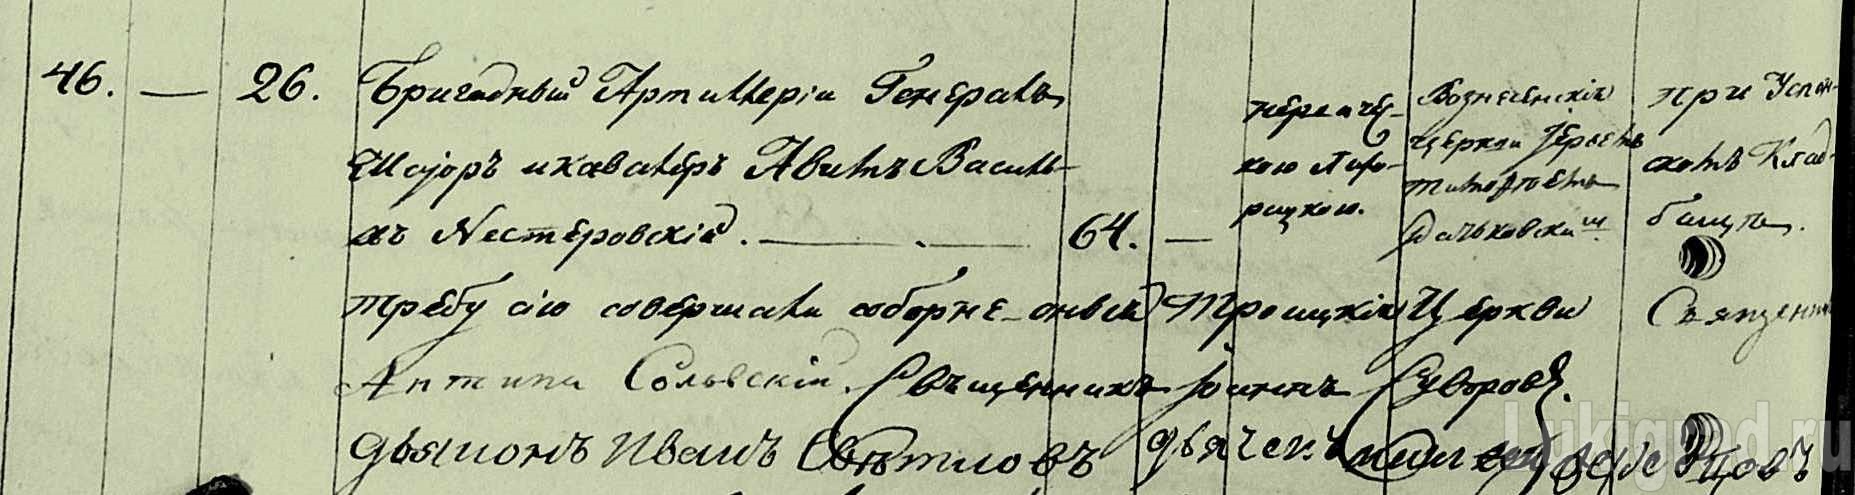 46. — 26. Бригадный Артиллеріи Генералъ
Маіоръ и кавалеръ Авитъ Василь-
чъ Nестеровскій. — . — 64. —
нервиче-
кою Лихо-
радкою.
Вознесенскія
церкви Іерей
Дольковскій
при Успен-
скомъ Клад-
бищѣ.
требу сію совершали соборне оныя Троицкія Церкви Священник
Антипа Сольскій. Священникъ Іоаннъ Суворовъ.
дьяконъ Иванъ Свѣтловъ дьячек
Lukigrad.ru